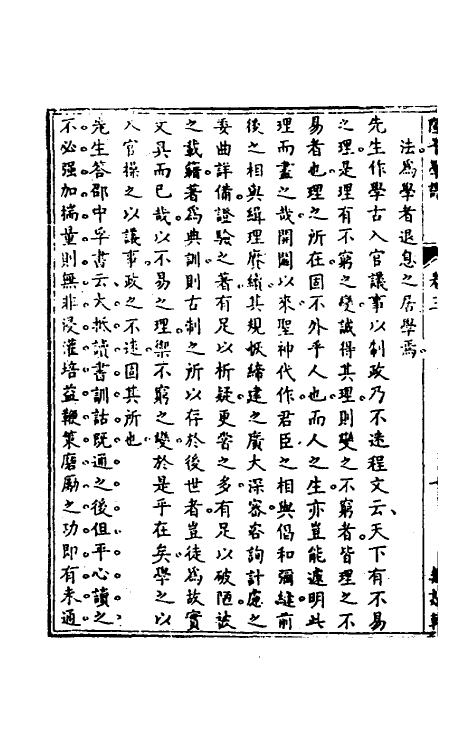 陸子學譜 卷三
法爲學者退息之居學焉
先生作學古入官議事以制政乃不迷程文云天下有不易
之理是理有不窮之變誠得其理則變之不窮者皆理之不
易者也理之所在固不外乎人也而人之生亦豈能遽明此
理而盡之哉開闢以來聖神代作君臣之相與倡和彌縫前
後之相與緝理賡續其規恢締建之廣大深密咨詢計慮之
委曲詳備證驗之著有足以析疑更嘗之多有足以破陋被
之載籍著爲典訓則古制之所以存於後世者豈徒爲故實
文具而已哉以不易之理禦不窮之變於是乎在矣學之以
入官操之以議事政之不迷固其所也
先生答邵中孚書云大抵讀書訓詁既通之後但平心讀之
不必强加揣量則無非浸灌培益鞭策磨勵之功即有未通